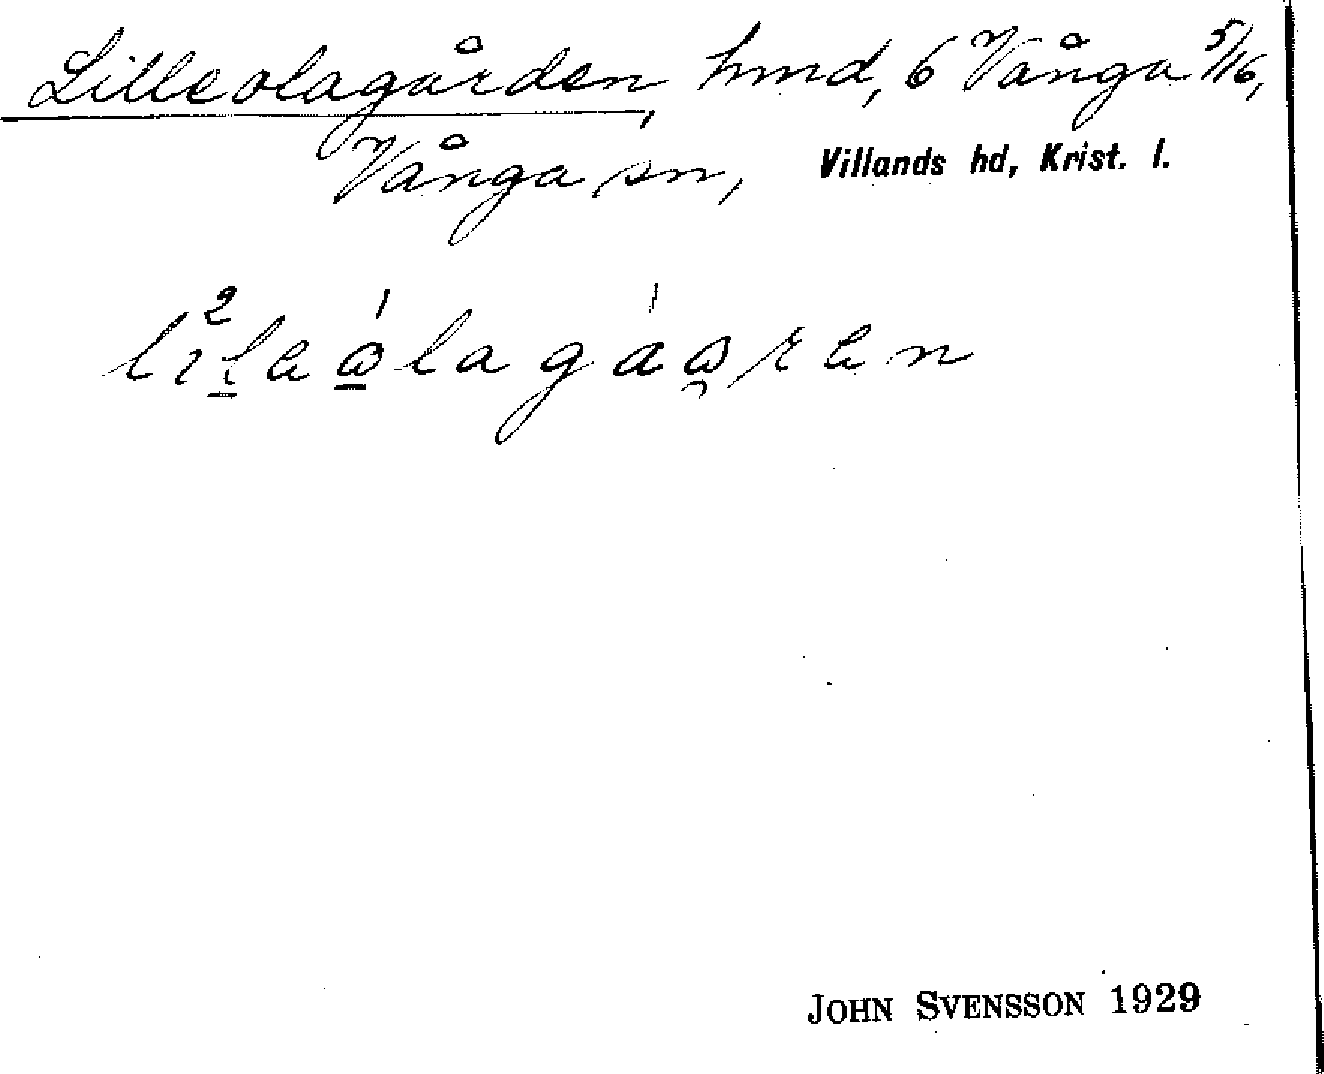 Lilleolagården, hmd, 6 Vånga 5/16,
Vånga sn, Villands hd, Krist. l.
JOHN SVENSSON 1929